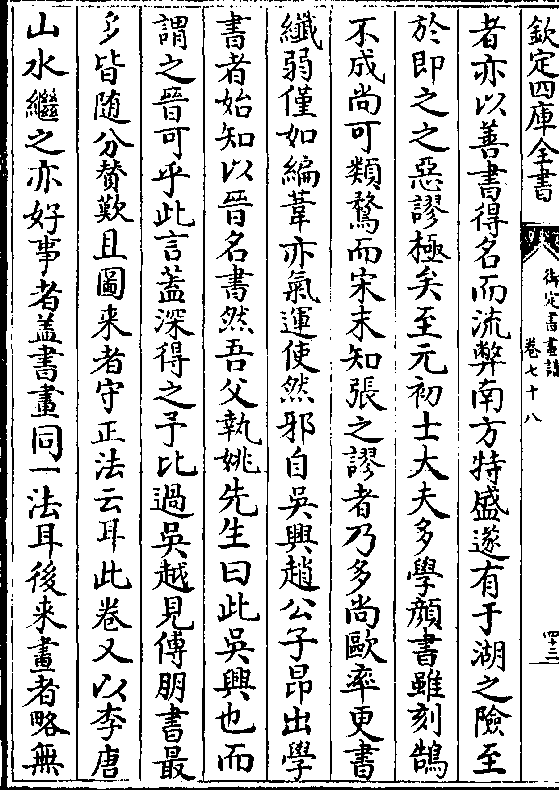 欽定四庫全書
御定書畫譜
卷七十八
四十三
者亦以善書得名而流弊南方特盛遂有于湖之險至
於即之之惡謬極矣至元初士大夫多學顔書雖刻鵠
不成尚可類鶩而宋末知張之謬者乃多尚歐率更書
纖弱僅如編葦亦氣運使然邪自吳興趙公子昂出學
書者始知以晉名書然吾父執姚先生曰此吳興也而
謂之晉可乎此言蓋深得之予比過吳越見傅朋書最
多皆随分賛歎且圖来者守正法云耳此卷又以李唐
山水繼之亦好事者盖書畫同一法耳後来畫者略無